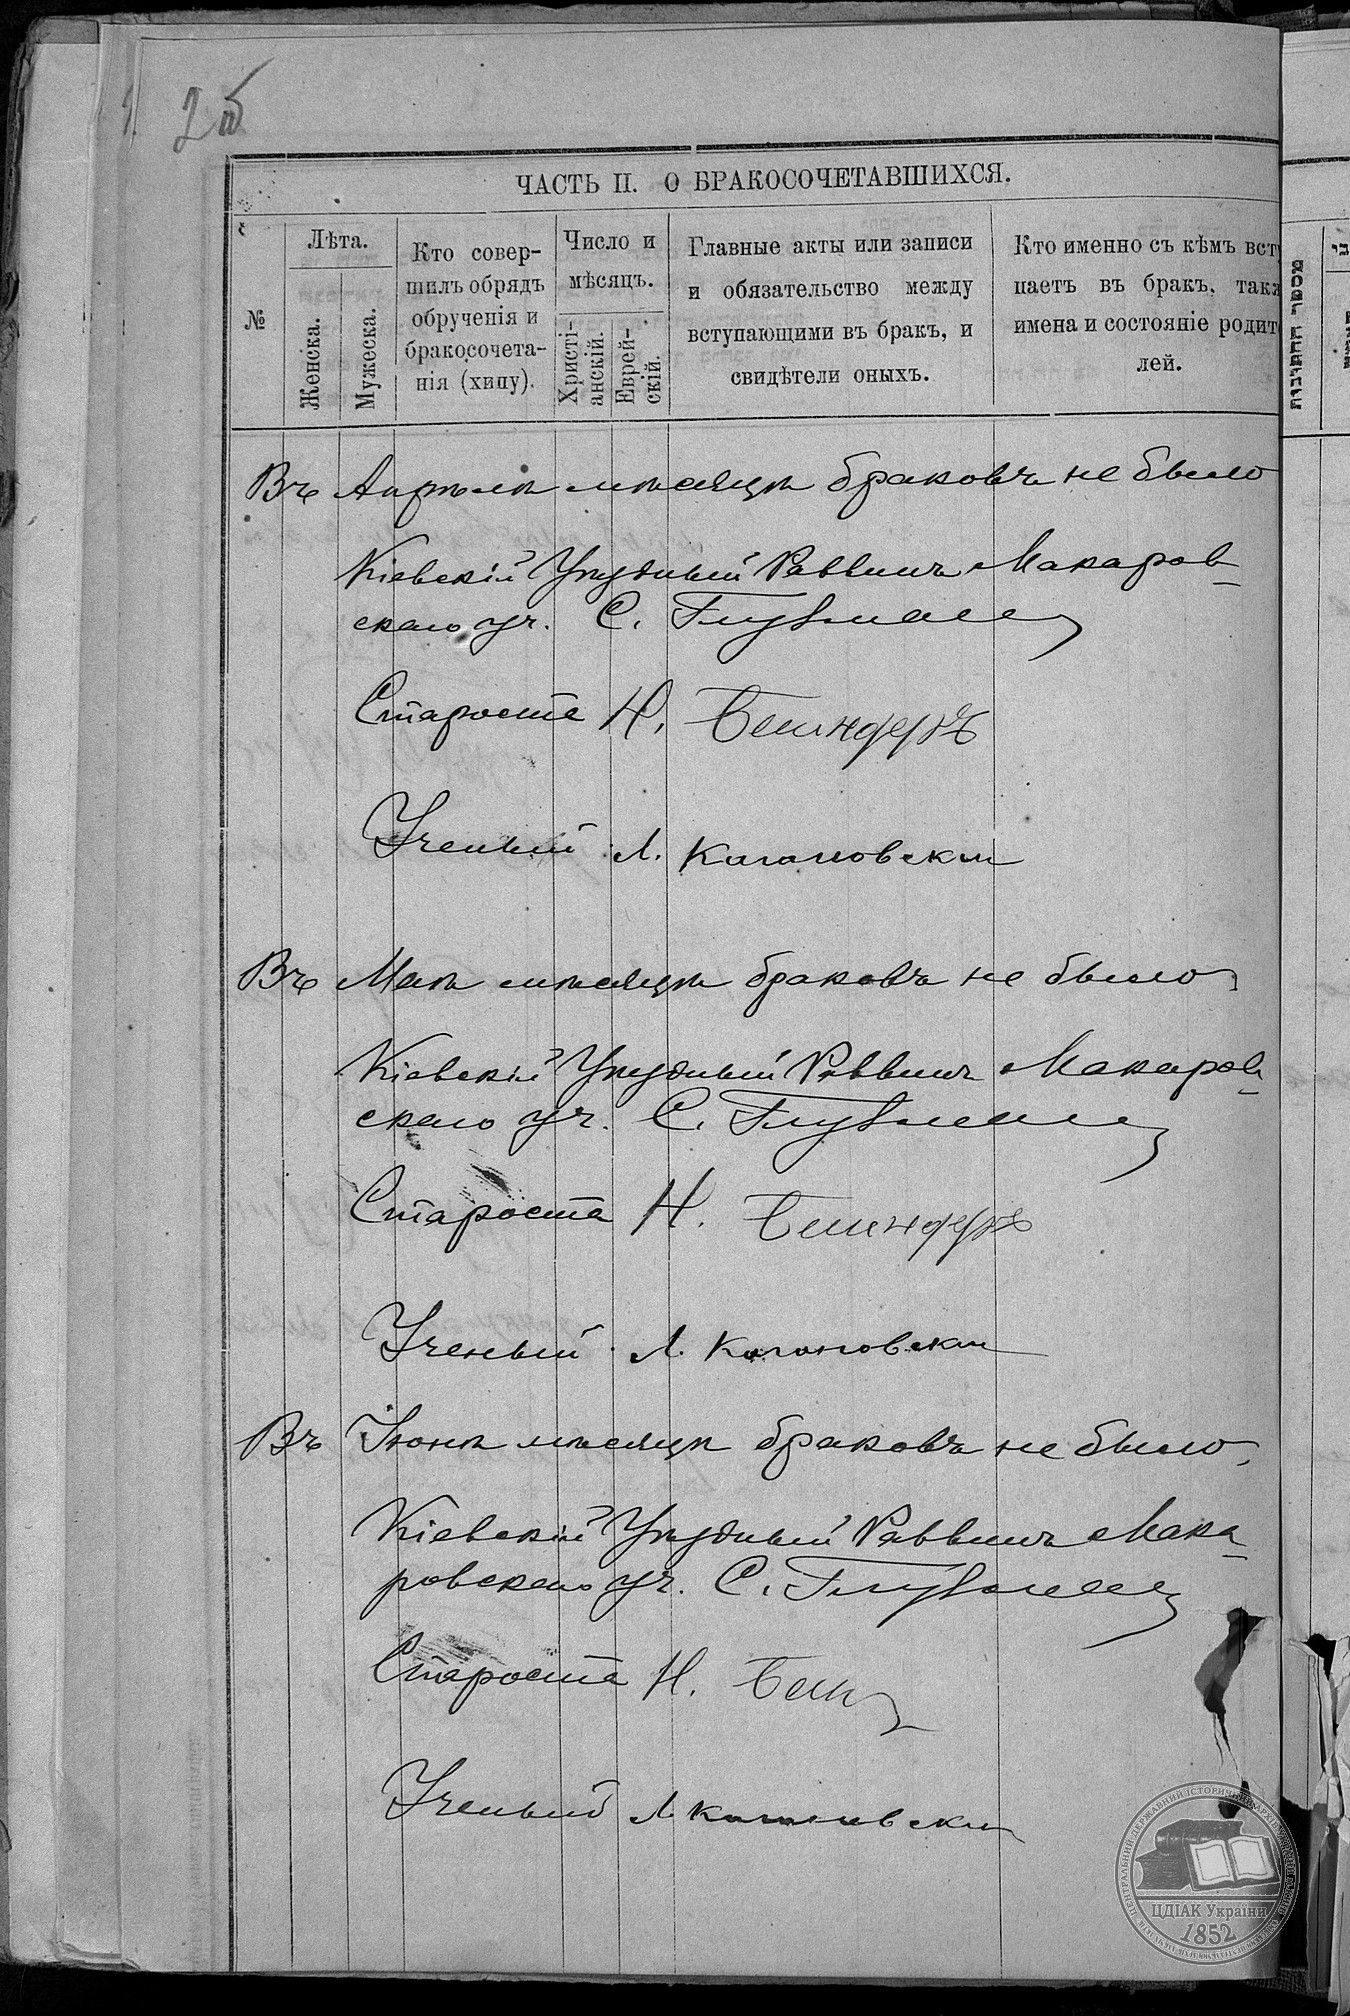 ЧАСТЬ II. О БРАКОСОЧЕТАВШИХСЯ.
№
Лѣта.
Женска.
Мужеска.
Кто совер-
шилъ обрядъ
обрученія и
бракосочета-
нія (хипу).
Число и
мѣсяцъ.
Христі-
анскій.
Еврей-
скій.
Главные акты или записи
и обязательство между
вступающими въ бракъ, и
свидѣтели оныхъ.
Кто именно съ кѣмъ всту
паетъ въ бракъ, такж
имена и состояніе родите
лей.
מספר החתונות
Въ Апрѣлѣ мѣсяцѣ браковъ не было
Кіевскій Уѣздный Раввинъ Макаров-
скаго уч. С. Глузман
Староста Н.
Ученый Л. Кагановский
Въ Маѣ мѣсяцѣ браковъ не было
Кіевскій Уѣздный Раввинъ Макаров-
скаго уч. С. Глузман
Староста Н.
Ученый Л. Кагановский
Въ Іюнѣ мѣсяцѣ браковъ не было
Кіевскій Уѣздный Раввинъ Мака-
ровскаго уч. С. Глузман
Староста Н.
Ученый Л. Кагановский
ЦДІАК України
1852